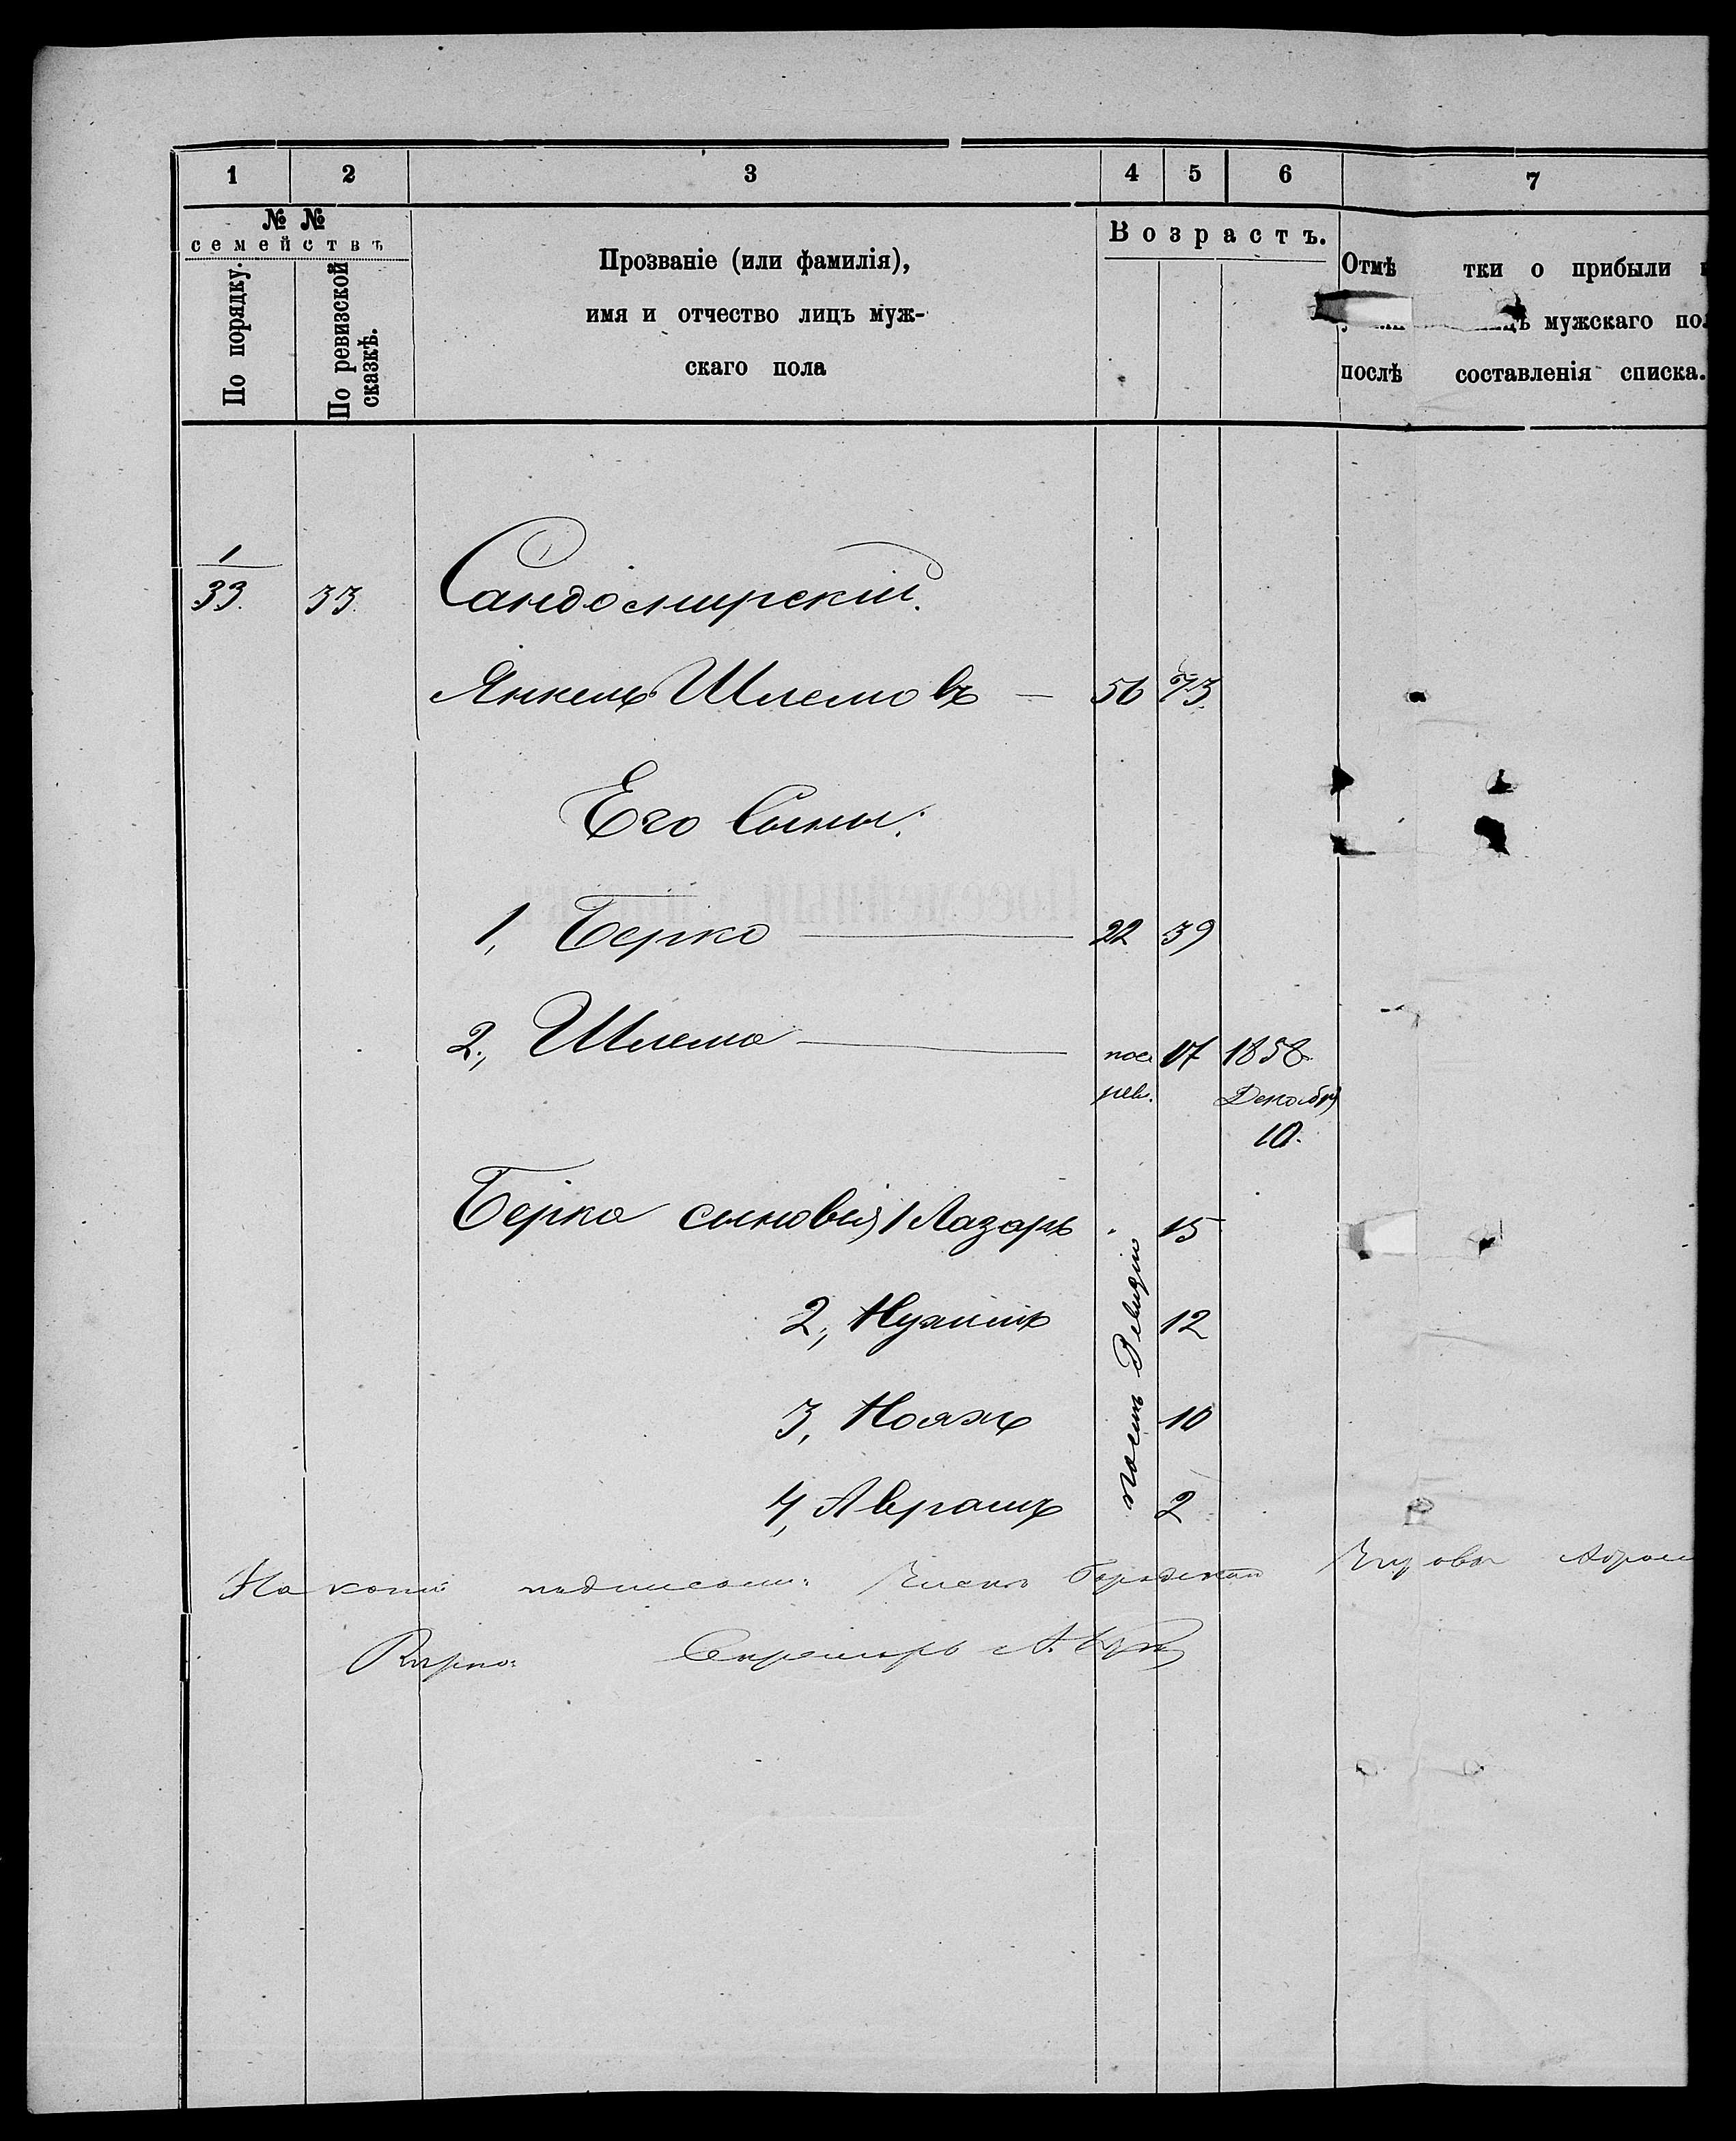 1 2 3 4 5 6 7
№ № семействъ
По порядку.
По ревизской сказкѣ.
Прозваніе (или фамилія),
имя и отчество лицъ муж-
скаго пола
Возрастъ.
Отмѣ тки о прибыли
мужскаго пол
послѣ составленія списка.
1
33. 33. Сандомирскій.
Янкель Шлемовъ — 56 73
Его Сыны:
1, Берко 22 39
2, Шлема посл 17 1858
рев. Декабря
10.
Берка сыновья 1 Лазарь 15
2, Нухимъ 12
3, Ноахъ 10
4, Аврамъ 2
послѣ Ревизіи
На копіи подписали: Членъ Городской Управы Абрам
Секретарь А.